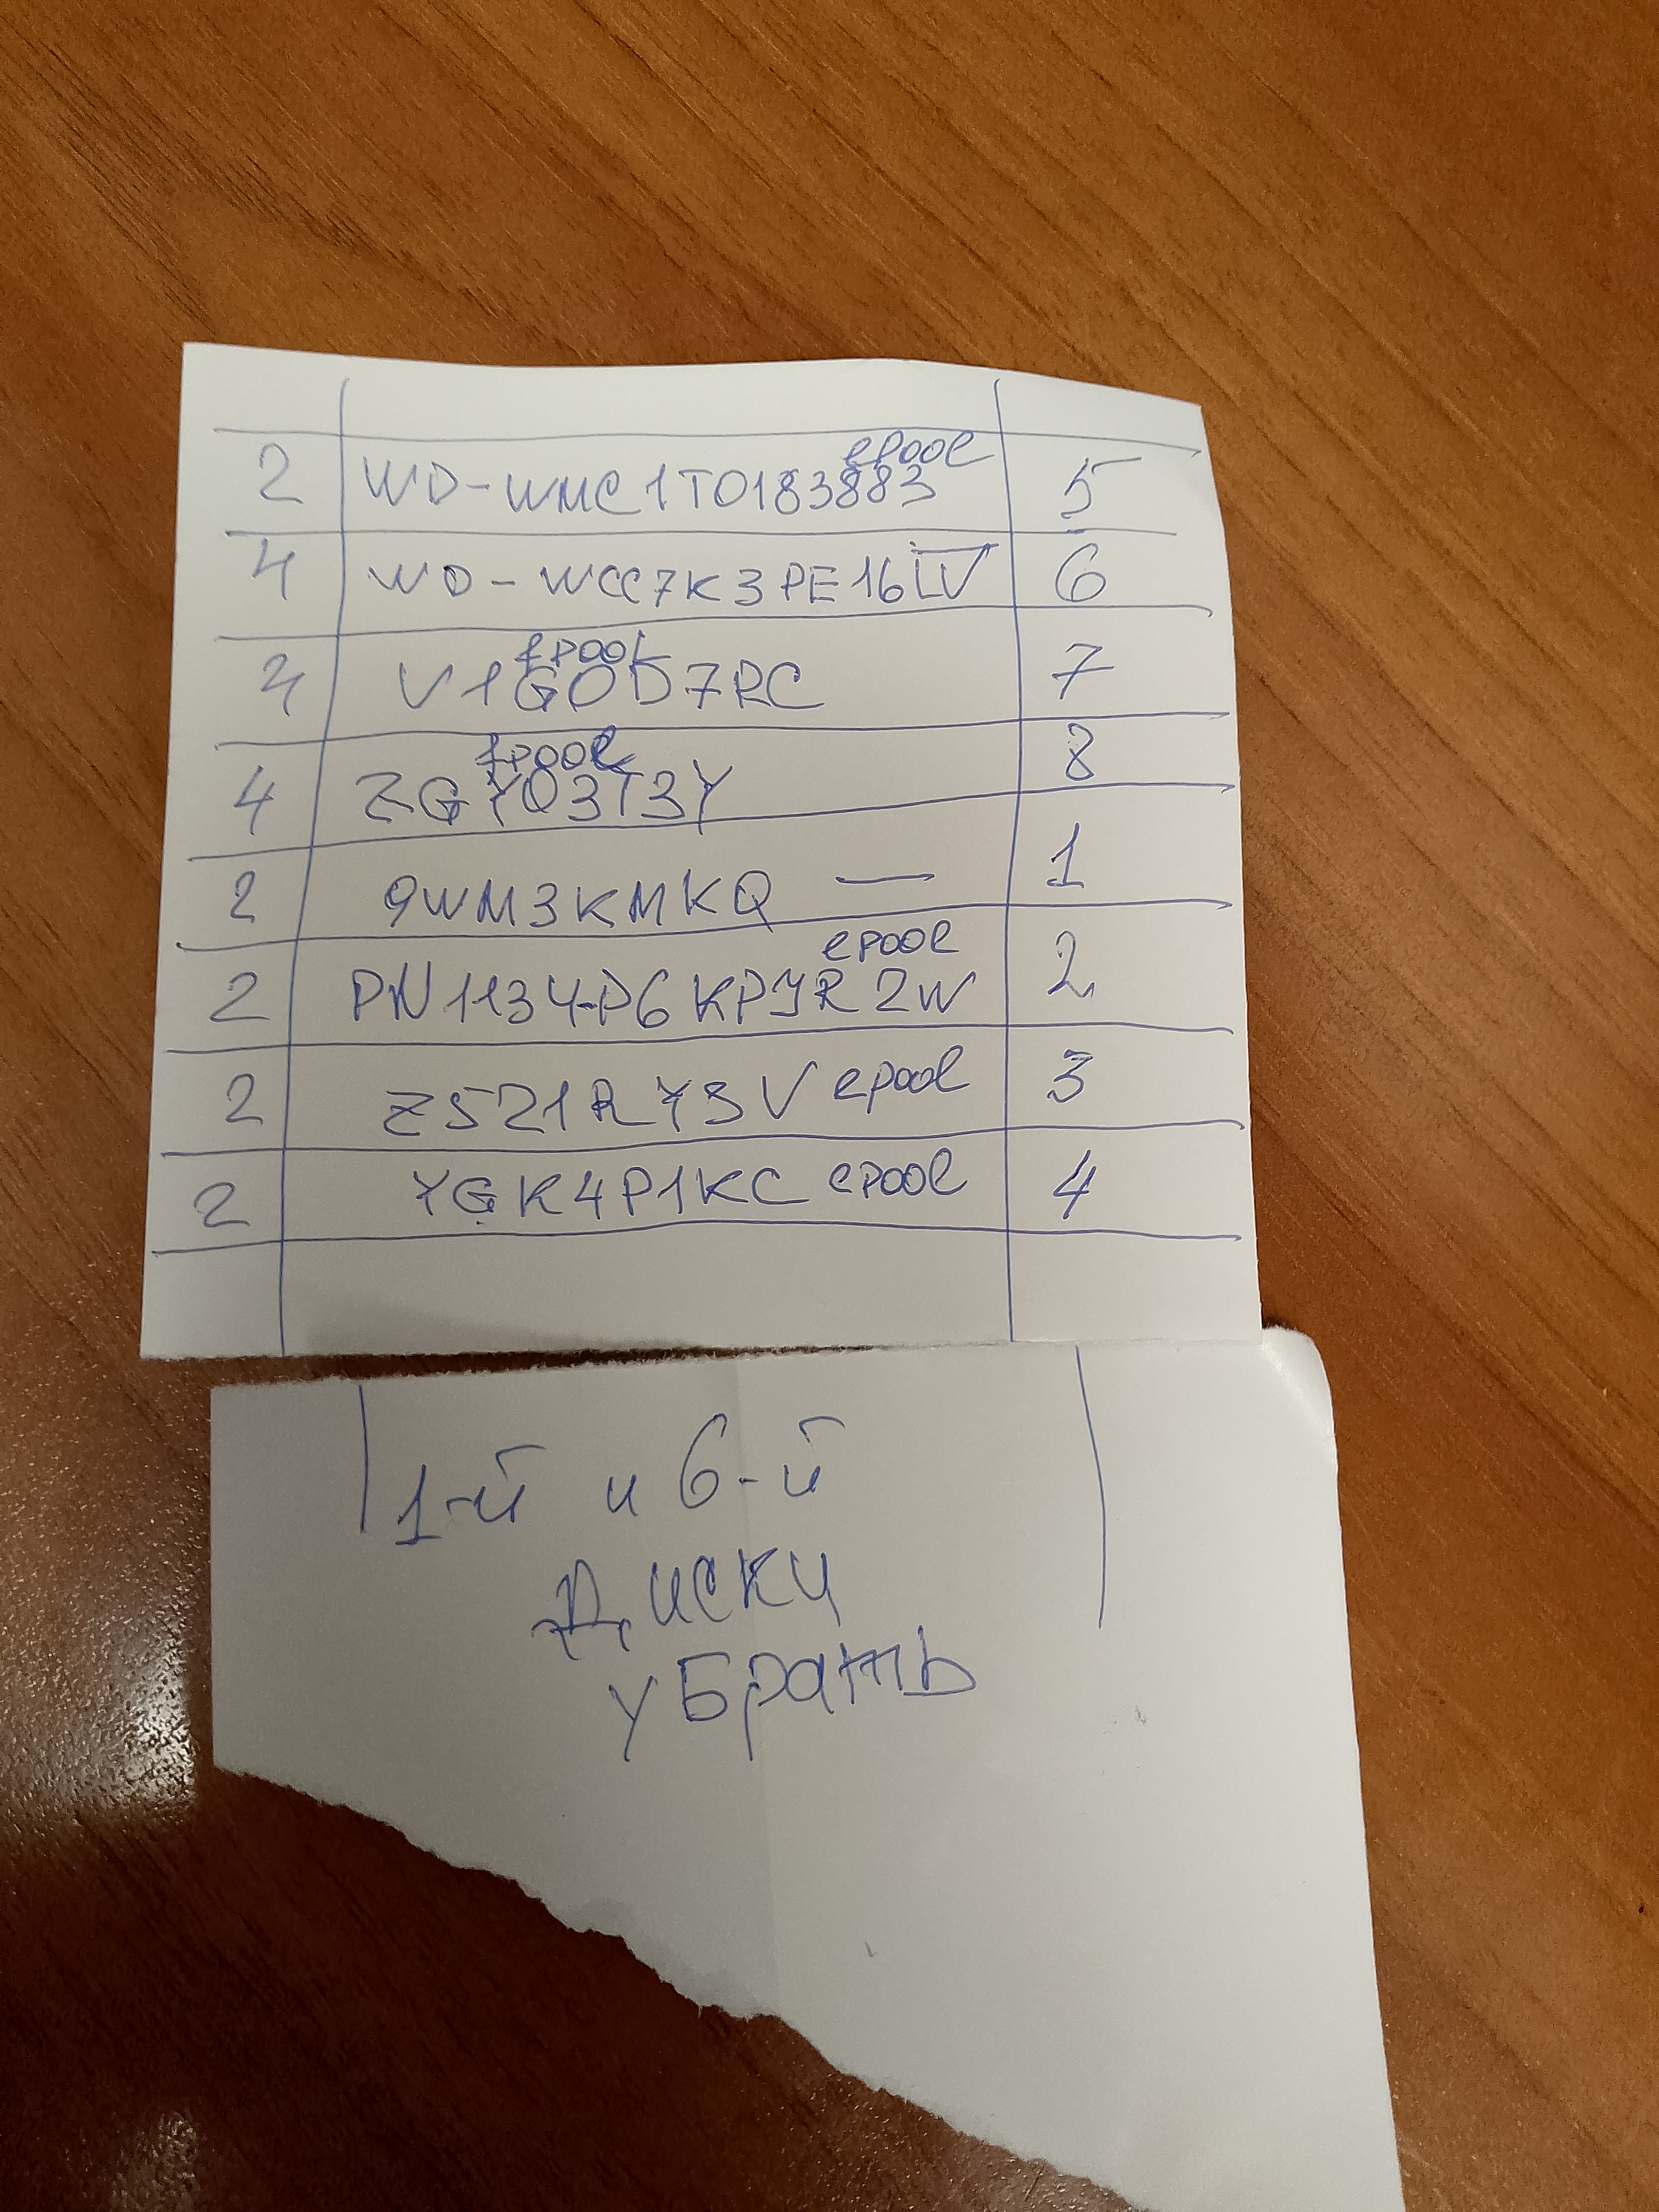 2 WD-WMC1T0183883 epool 5
4 WD-WCC7K3PE16LV 6
4 V1G0D7RC epool 7
4 ZGY03T3Y epool 8
2 9WM3KMKQ — 1
2 PN1134P6KPJR2W epool 2
2 Z521RY3V epool 3
2 YGK4P1KC epool 4
1-й и 6-й
диски
убрать